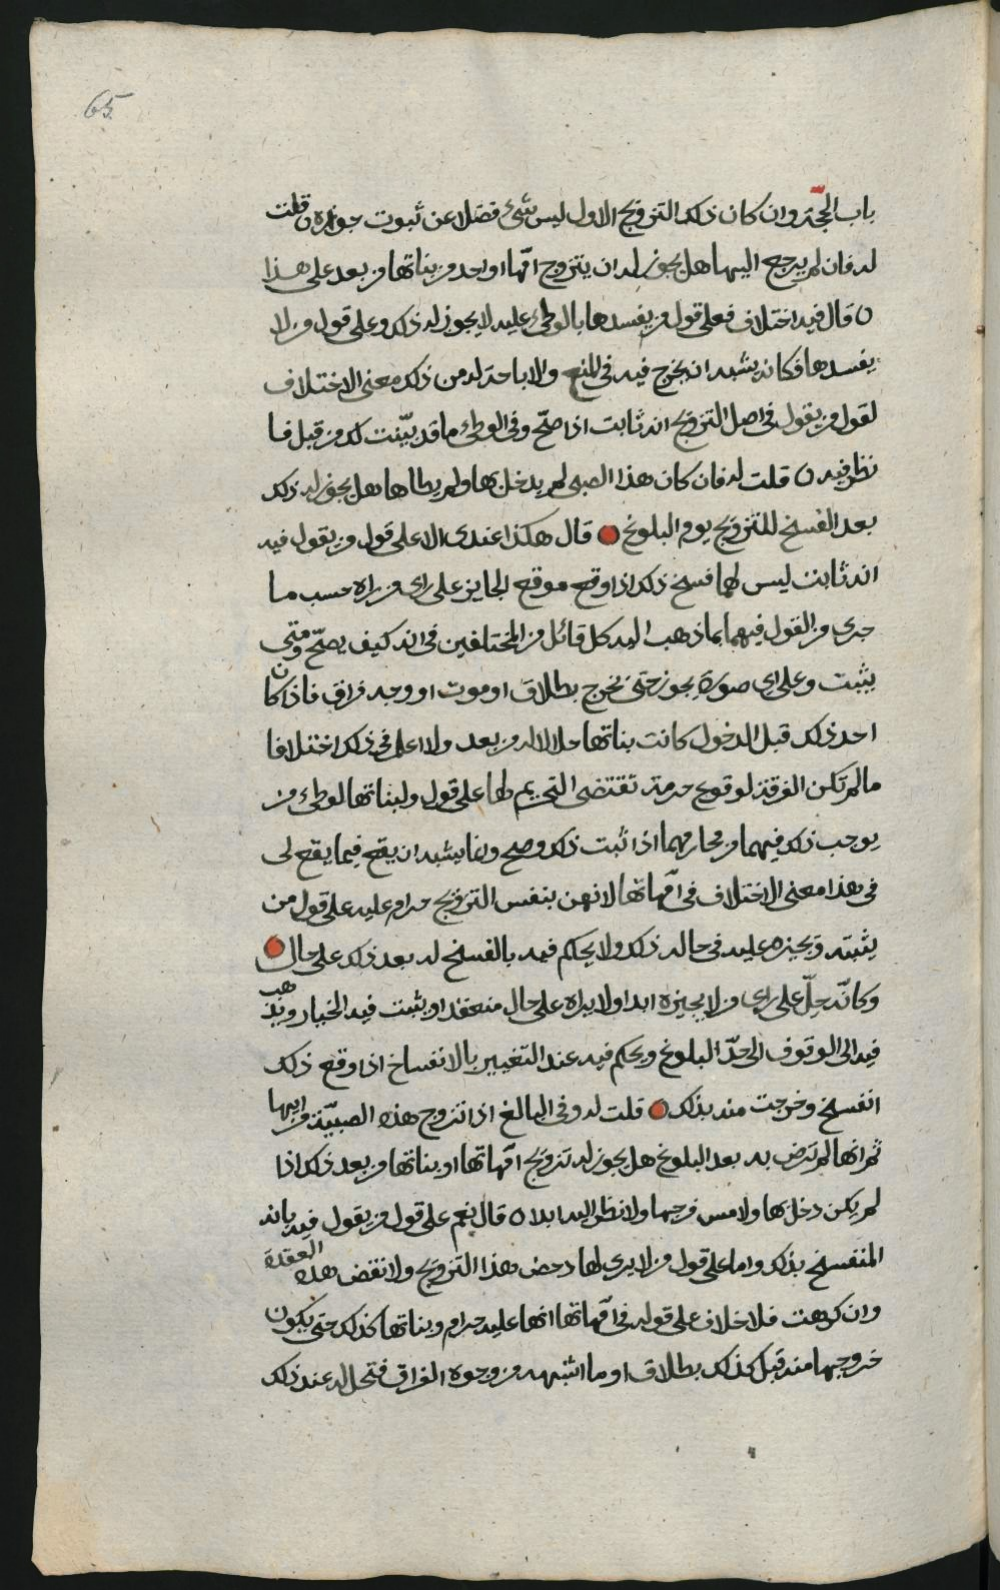 65
باب الحجّة وان كان ذلك التزويج الاول ليس بشيء فضلا عن ثبوت جوازه ٥ قلت
له فان لم يرجع اليها هل يجوز له ان يتزوج امّها او احد من بناتها من بعد على هذا
٥ قال فيه اختلاف فعلى قول من يفسدها بالوطئ عليه لا يجوز له ذلك وعلى قول من لا
يفسدها فكانه يشبه ان يخرج فيه في المنع والاباحة له من ذلك معنى الاختلاف
لقول من يقول في اصل التزويج انه ثابت اذا صحّ وفي الوطئ ما قد بيّنت لك من قبل فا
نظر فيه ٥ قلت له فان كان هذا الصبي لم يدخل بها ولم يطاها هل يجوز له ذلك
بعد الفسخ للتزويج يوم البلوغ قال هكذا عندي الا على قول من يقول فيه
انه ثابت ليس لهما فسخ ذلك اذا وقع موقع الجايز على راي من راه حسب ما
جرى من القول فيهما بما ذهب اليه كل قائل من المختلفين في انه كيف يصحّ ومتى
يثبت وعلى اي صورة يجوز حتى يخرج بطلاق او موت او وجه فراق فاذا كان
احد ذلك قبل الدخول كانت بناتها حلالا له من بعد ولا اعلم في ذلك اختلافا
ما لم تكن الفرقة لوقوع حرمة تقتضى التحريم لها على قول ولبناتها لوطئ من
يوجب ذلك فيهما من محارمهما اذا ثبت ذلك وصح وانما يشبه ان يقع فيما يقع لى
في هذا معنى الاختلاف في امّهاتها لانهن بنفس التزويج حرام عليه على قول من
يثبته ويجيزه عليه في حاله ذلك ولا يحكم فيه بالفسخ له بعد ذلك على حال
وكانّه حلّ على راي من لا يجيزه ابدا ولا يراه على حال منعقدا ويثبت فيه الخيار ويذهب
فيه الى الوقوف الى حدّ البلوغ ويحكم فيه عند التغيير بالانفساخ اذا وقع ذلك
انفسخ وخرجت منه بذلك قلت له وفي البالغ اذا تزوج هذه الصبيّة من ابيها
ثم انها لم ترض به بعد البلوغ هل يجوز له تزويج امّهاتها او بناتها من بعد ذلك اذا
لم يكن دخل بها ولا مس فرجها ولا نظر اليه ابدا ٥ قال نعم على قول من يقول فيه بانه
المنفسخ بذلك واما على قول من لا يرى لها دحض هذا التزويج ولا نقض هذه العقدة
وان كرهت فلا خلاف على قوله في امّهاتها انها عليه حرام وبناتها كذلك حتى يكون
خروجها منه قبل كذلك بطلاق او ما اشبهه من وجوه الفراق فتحل له عند ذلك